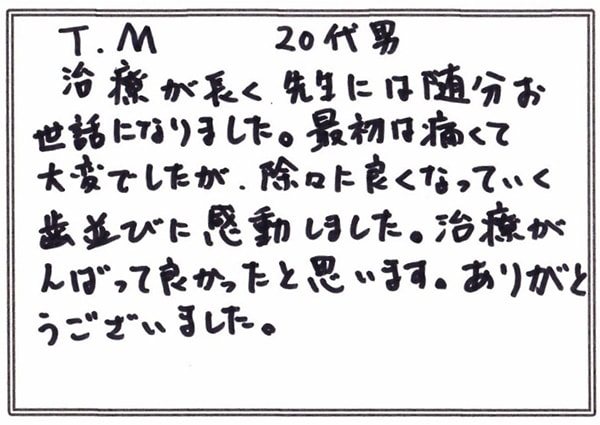 T.M 20代男
治療が長く先生には随分お
世話になりました。最初は痛くて
大変でしたが、除々に良くなっていく
歯並びに感動しました。治療が
んばって良かったと思います。ありがと
うございました。